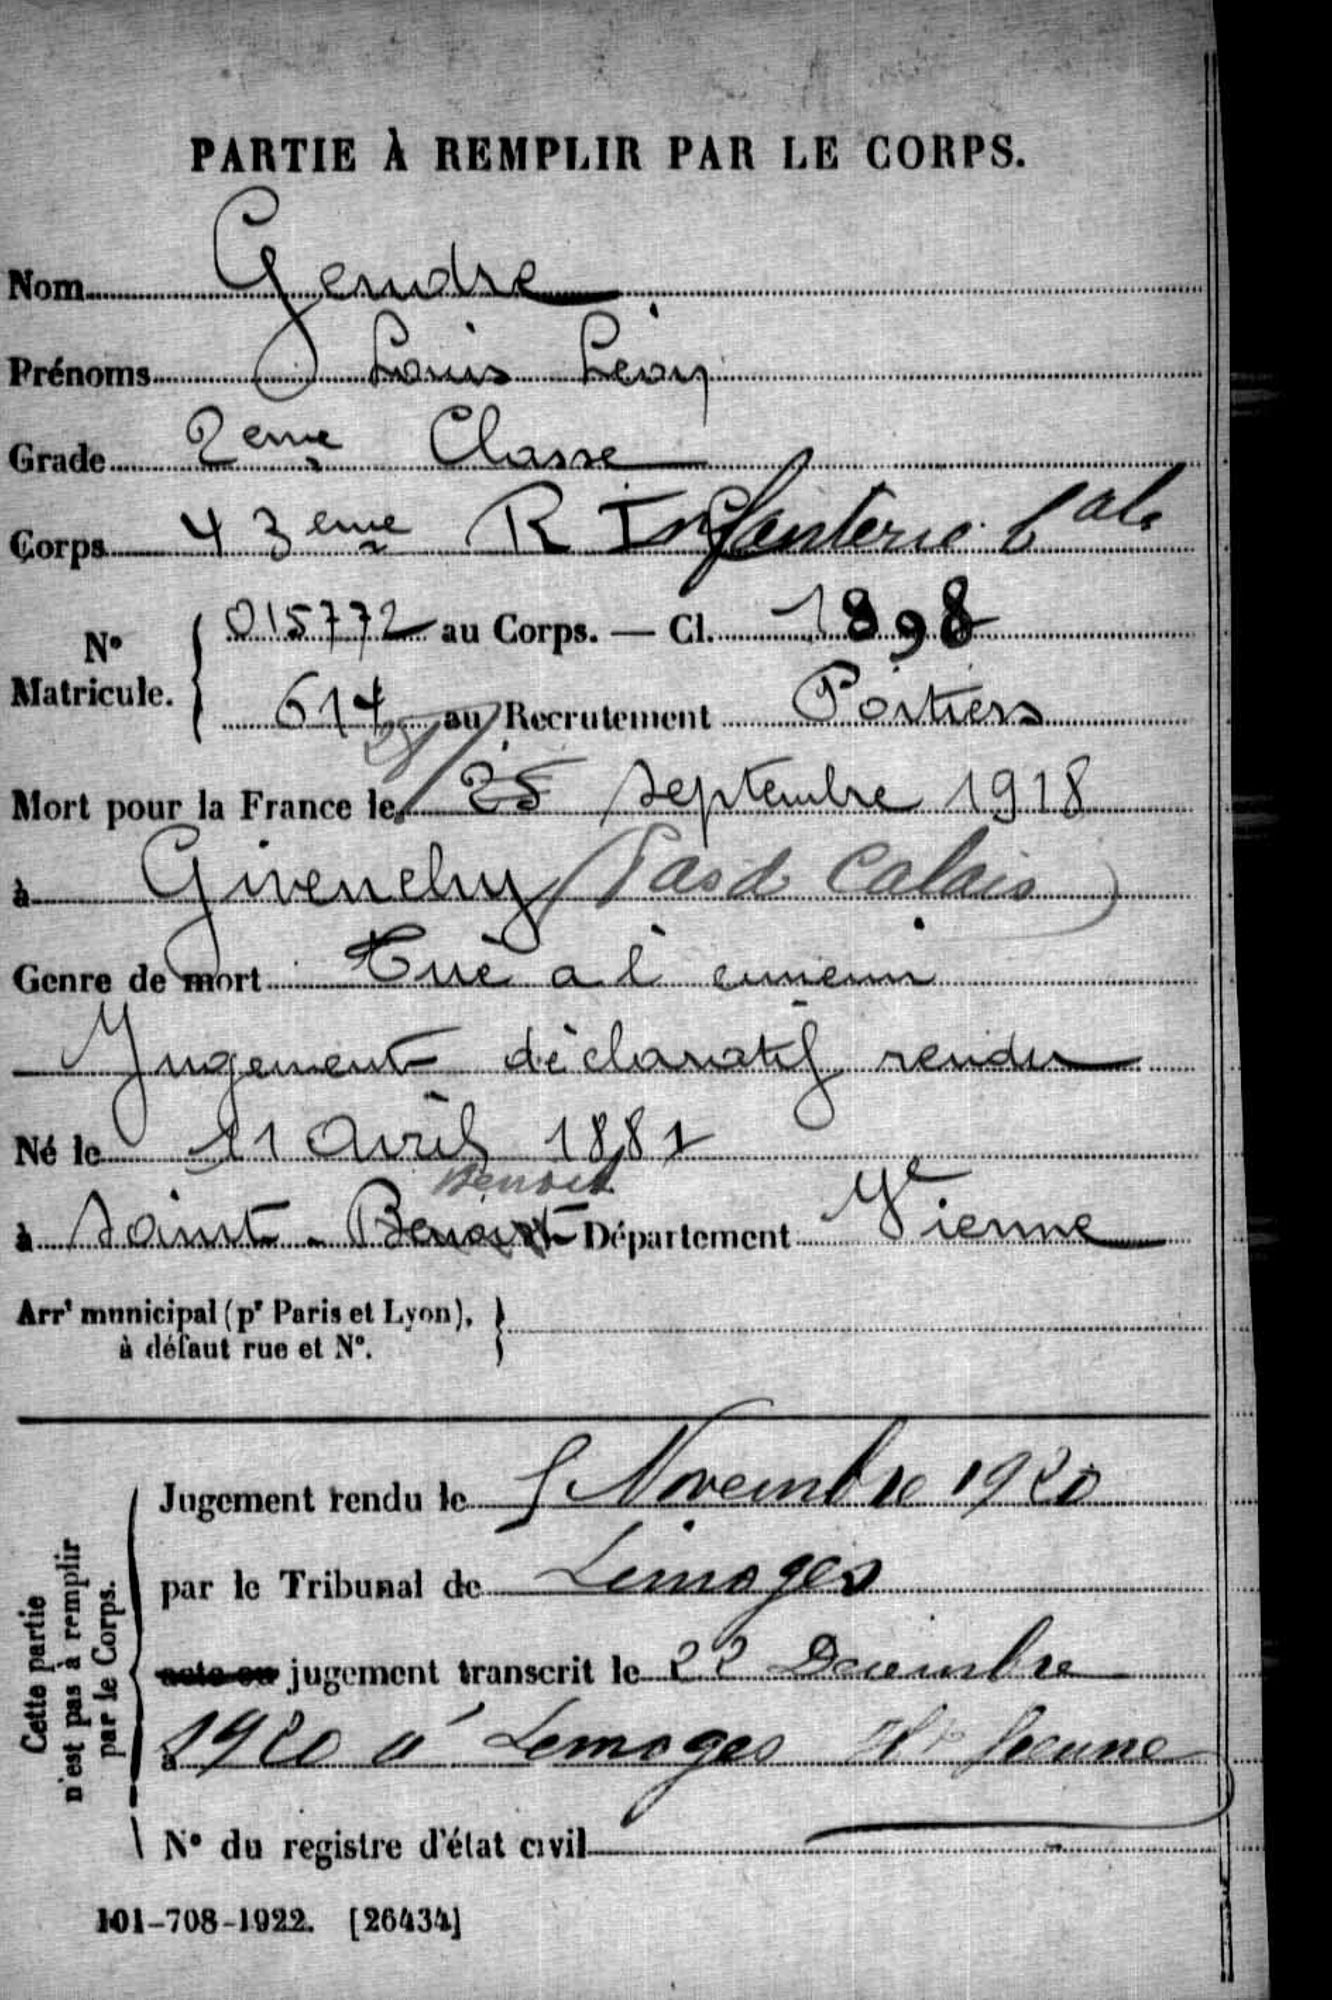 PARTIE À REMPLIR PAR LE CORPS.
Nom Gendre
Prénoms Louis Léon
Grade 2eme Classe
Corps 43eme R Infanterie Cale
N° Matricule. 015772 au Corps. — Cl. 1898
614 au Recrutement Poitiers
Mort pour la France le 25 septembre 1918
à Givenchy (Pas d. Calais)
Genre de mort Tué a l'ennemi
Jugement déclaratif rendu
Né le 11 Avril 1881
Benoit
à Saint-Benoist Département Vienne
Arrt municipal (pr Paris et Lyon),
à défaut rue et N°.
Jugement rendu le 5 Novembre 1920
par le Tribunal de Limoges
acte ou jugement transcrit le 22 Decembre
à 1920 à Limoges Hte
N° du registre d'état civil
Cette partie
n'est pas à remplir
par le Corps.
101-708-1922. [26434]